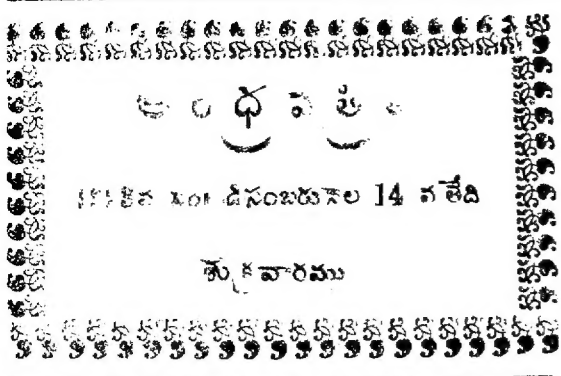 ఆంధ్రపత్రిక
డిసంబరునెల 14 వ తేది
శుక్రవారము